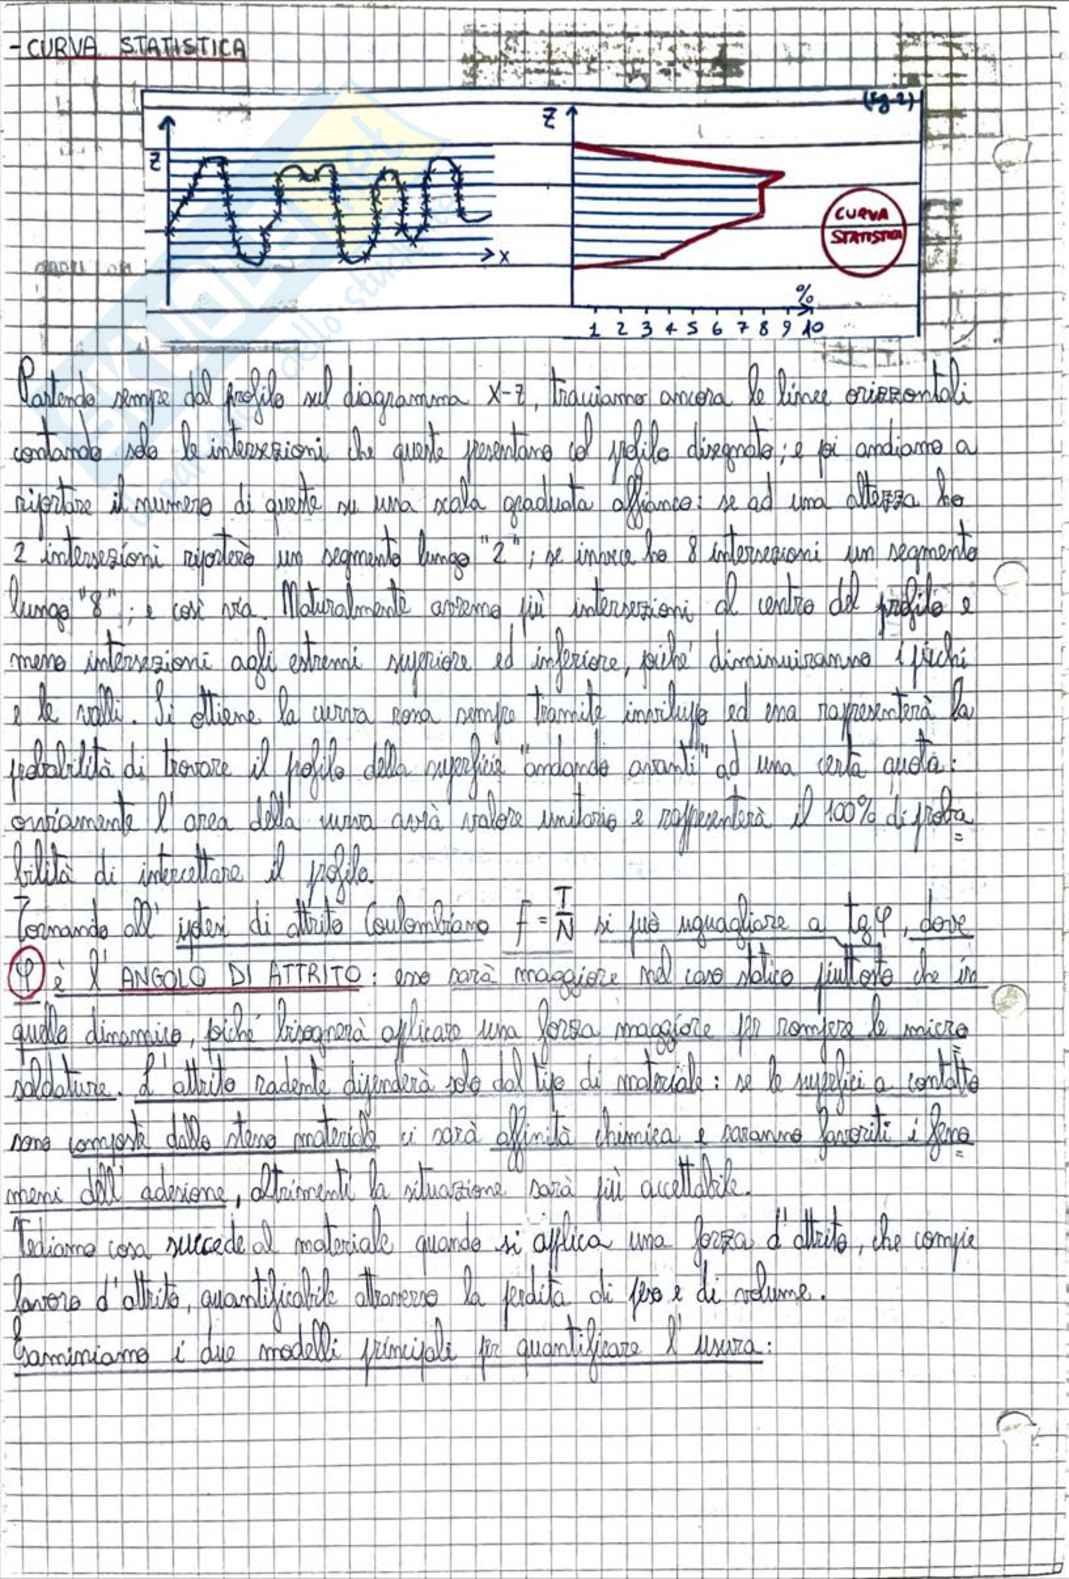 - CURVA STATISTICA
(Fig. 2)
Z
Z
x
CURVA
STATISTICA
%
1 2 3 4 5 6 7 8 9 10
Partendo sempre dal profilo sul diagramma x-z, tracciamo ancora le linee orizzontali
contando solo le intersezioni che queste presentano col profilo disegnato; e poi andiamo a
riportare il numero di queste su una scala graduata affianco: se ad una altezza ho
2 intersezioni riporterò un segmento lungo "2"; se invece ho 8 intersezioni un segmento
lungo "8"; e così via. Naturalmente avremo più intersezioni al centro del profilo e
meno intersezioni agli estremi superiore ed inferiore, poiché diminuiranno i picchi
e le valli. Si ottiene la curva rossa sempre tramite inviluppo ed essa rappresenterà la
probabilità di trovare il profilo della superficie "andando avanti" ad una certa quota:
ovviamente l'area della curva avrà valore unitario e rappresenterà il 100% di proba
bilità di intercettare il profilo.
Tornando all'ipotesi di attrito Coulombiano f = T/N si può uguagliare a tgφ, dove
φ è l'ANGOLO DI ATTRITO: esso sarà maggiore nel caso statico piuttosto che in
quello dinamico, poiché bisognerà applicare una forza maggiore per rompere le micro
saldature. L'attrito radente dipenderà solo dal tipo di materiale: se le superfici a contatto
sono composte dallo stesso materiale ci sarà affinità chimica e saranno favoriti i feno
meni dell'adesione, altrimenti la situazione sarà più accettabile.
Vediamo cosa succede al materiale quando si applica una forza d'attrito, che compie
lavoro d'attrito, quantificabile attraverso la perdita di peso e di volume.
Esaminiamo i due modelli principali per quantificare l'usura: